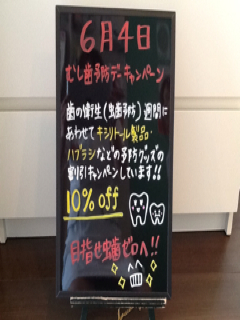 6月4日
むし歯予防デーキャンペーン
歯の衛生(虫歯予防)週間に
あわせてキシリトール製品・
ハブラシなどの予防グッズの
割引キャンペーンしています!!
10% off
目指せ虫歯ゼロへ!!